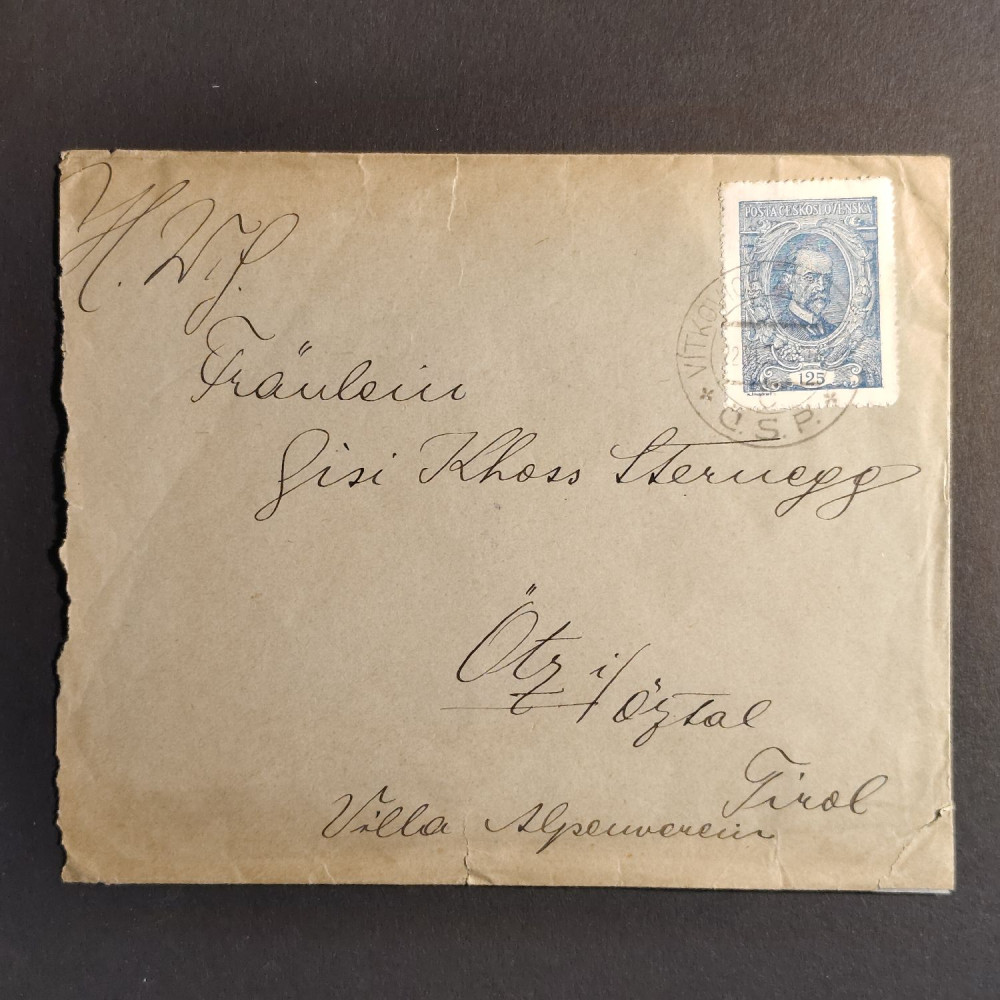 H. Wlf.
POŠTA ČESKOSLOVENSKÁ
125
VÍTKO
22
Č. S. P.
Fräulein
Gisi Khoss Sternegg
Ötz i/ Öztal
Tirol
Villa Alpenverein